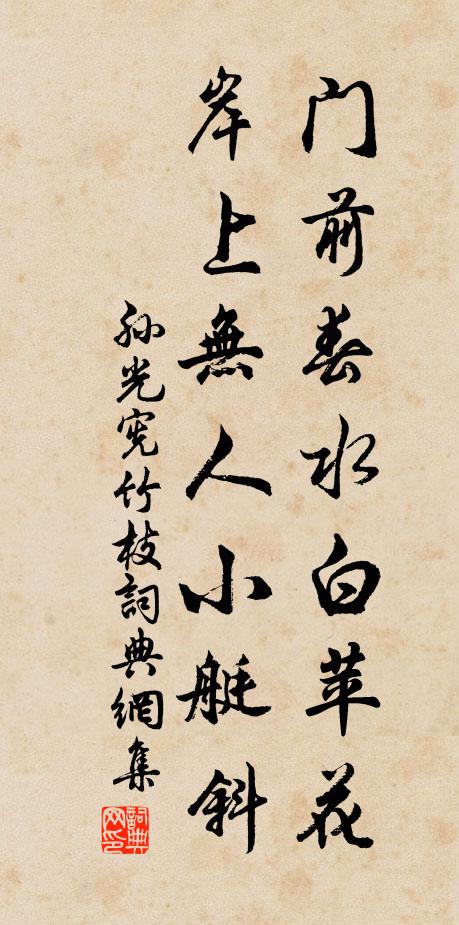 门前春水白苹花
岸上無人小艇斜
孙光宪竹枝詞典網集
詞典网印